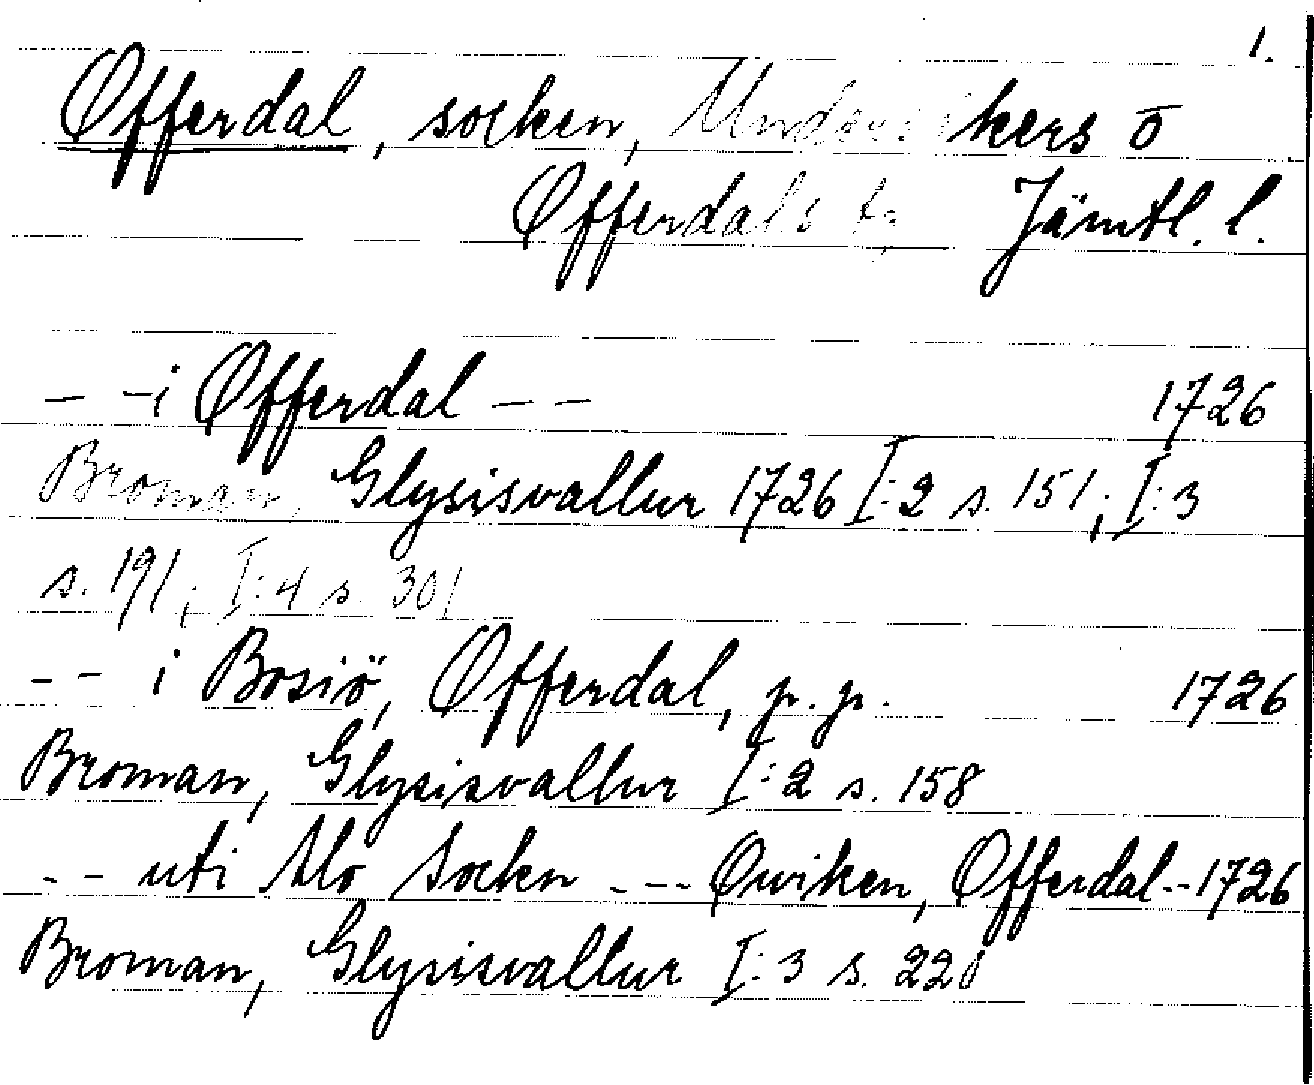 1.
Offerdal, socken, Undersåkers ō
Offerdals Jämtl. l.
- - i Offerdal - - 1726
Broman, Glysisvallur 1726 I:2 s. 151; I:3
s. 191; I:4 s. 301
- - i Bosiö, Offerdal, p.p. 1726
Broman, Glysisvallur I:2 s. 158
- - uti Mo Sockn --- Owiken, Offerdal -- 1726
Broman, Glysisvallur I:3 s.